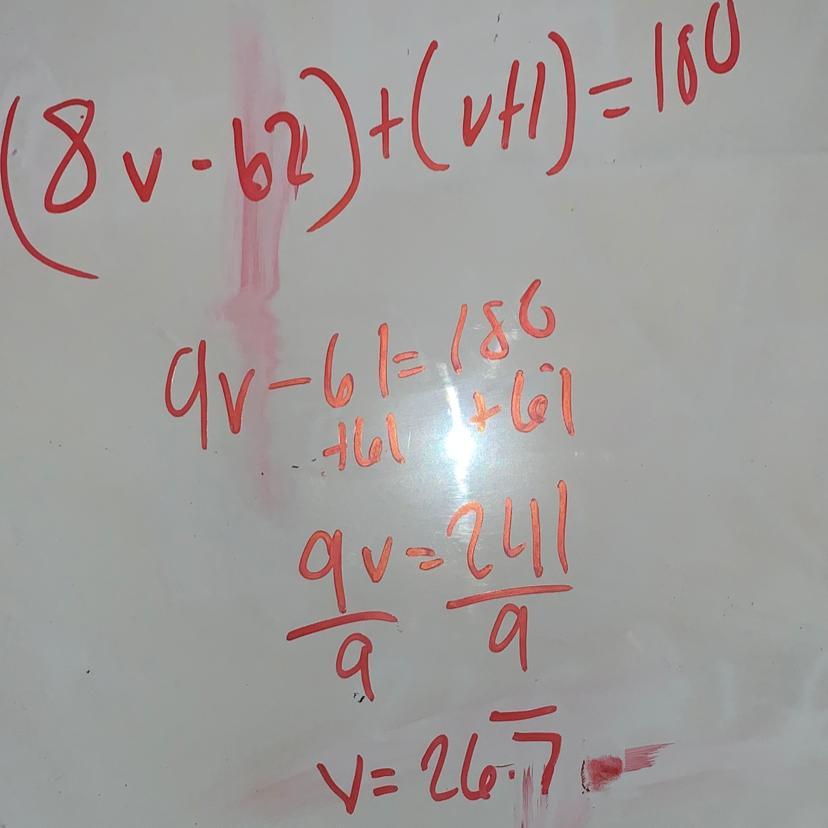 (8v-62)+(v+1)=180
9v-61=180
+61 +61
9v=241
9 9
v=26.7̅